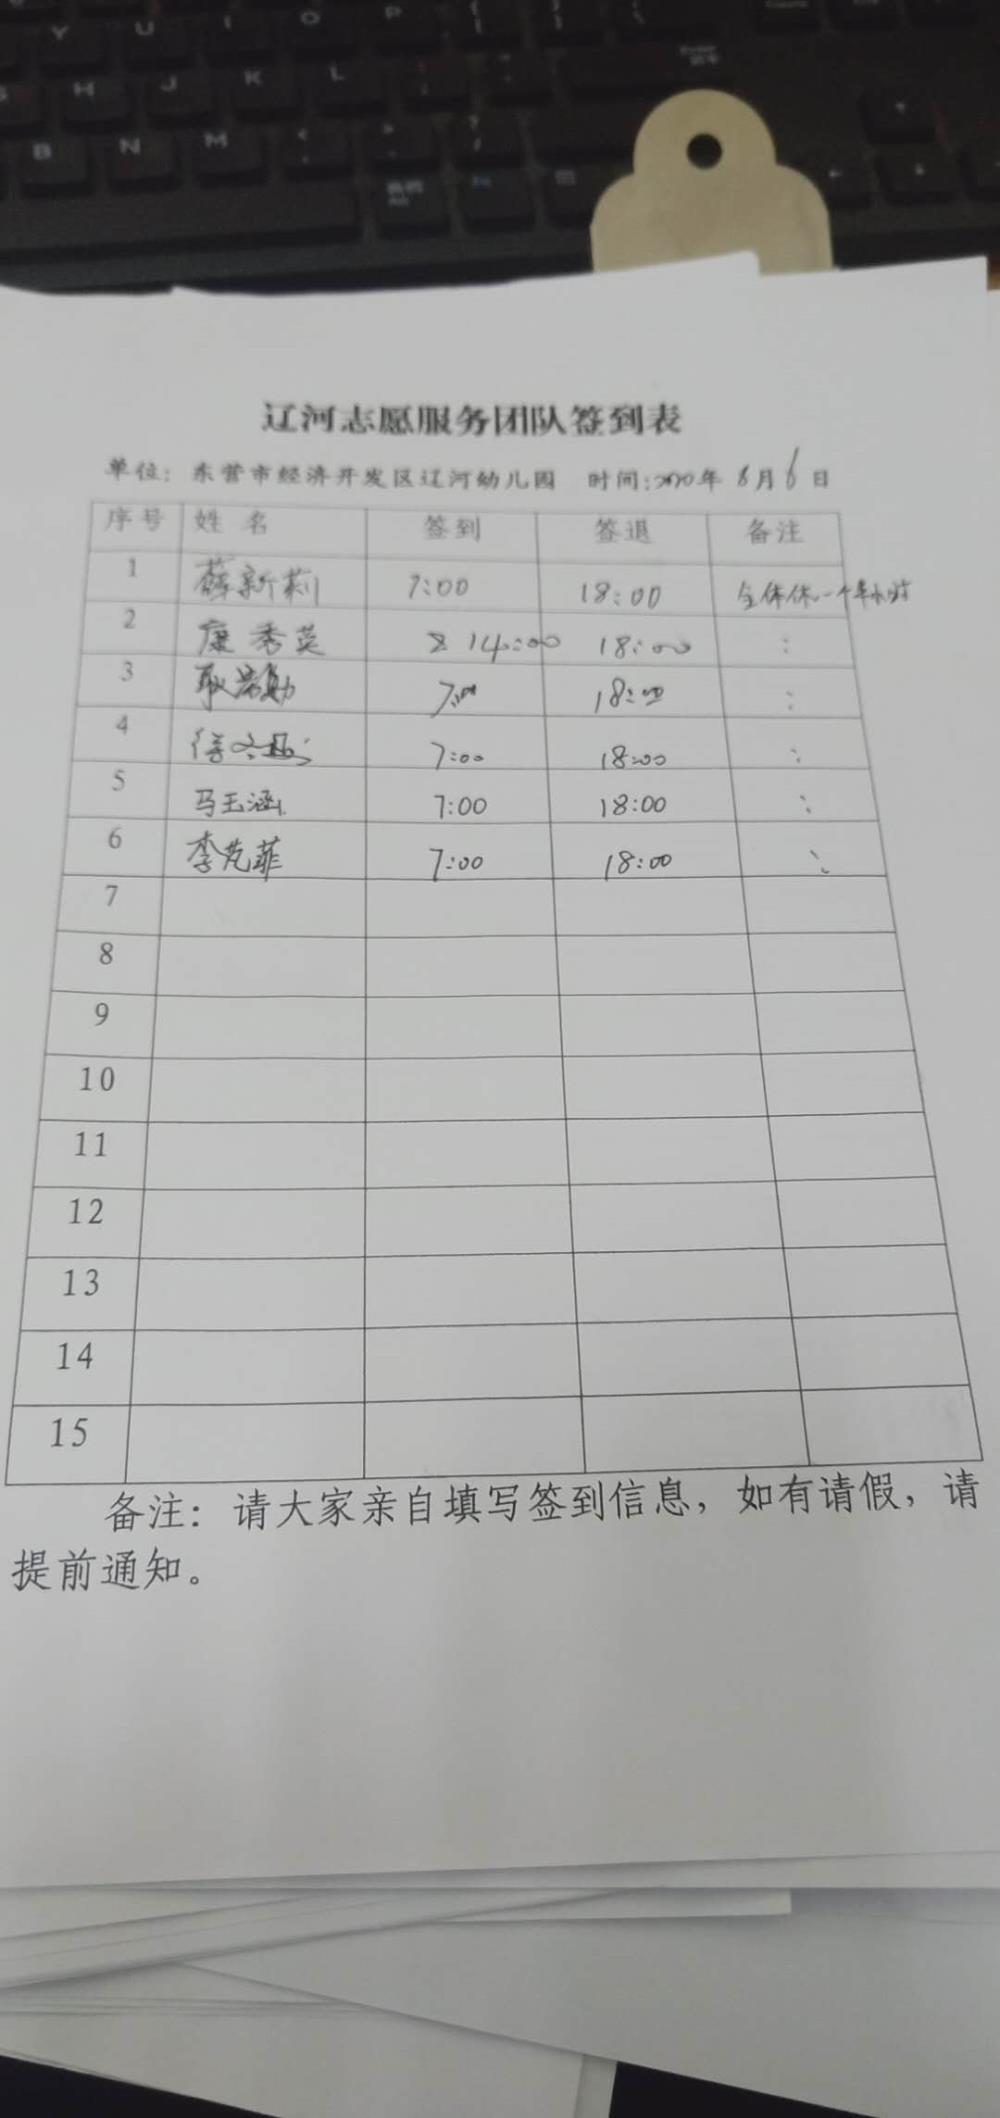 Y U I O P
H J K L
B N M
辽河志愿服务团队签到表
单位: 东营市经济开发区辽河幼儿园 时间:2020年 8月 6日
序号 姓 名 签到 签退 备注
1 薛新莉 7:00 18:00 全体休一个半小时
2 康秀英 14:00 18:00 :
3 7:00 18:00 :
4 7:00 18:00 :
5 马玉涵 7:00 18:00 :
6 李芃菲 7:00 18:00 :
7
8
9
10
11
12
13
14
15
备注: 请大家亲自填写签到信息, 如有请假, 请
提前通知。